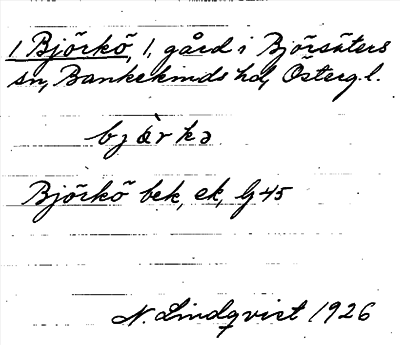 1 Björkö, 1, gård i Björsäters
sn, Bankekinds hd, Österg. l.
bjə̀rkə
Björkö bek, ek, G 45
N. Lindqvist 1926